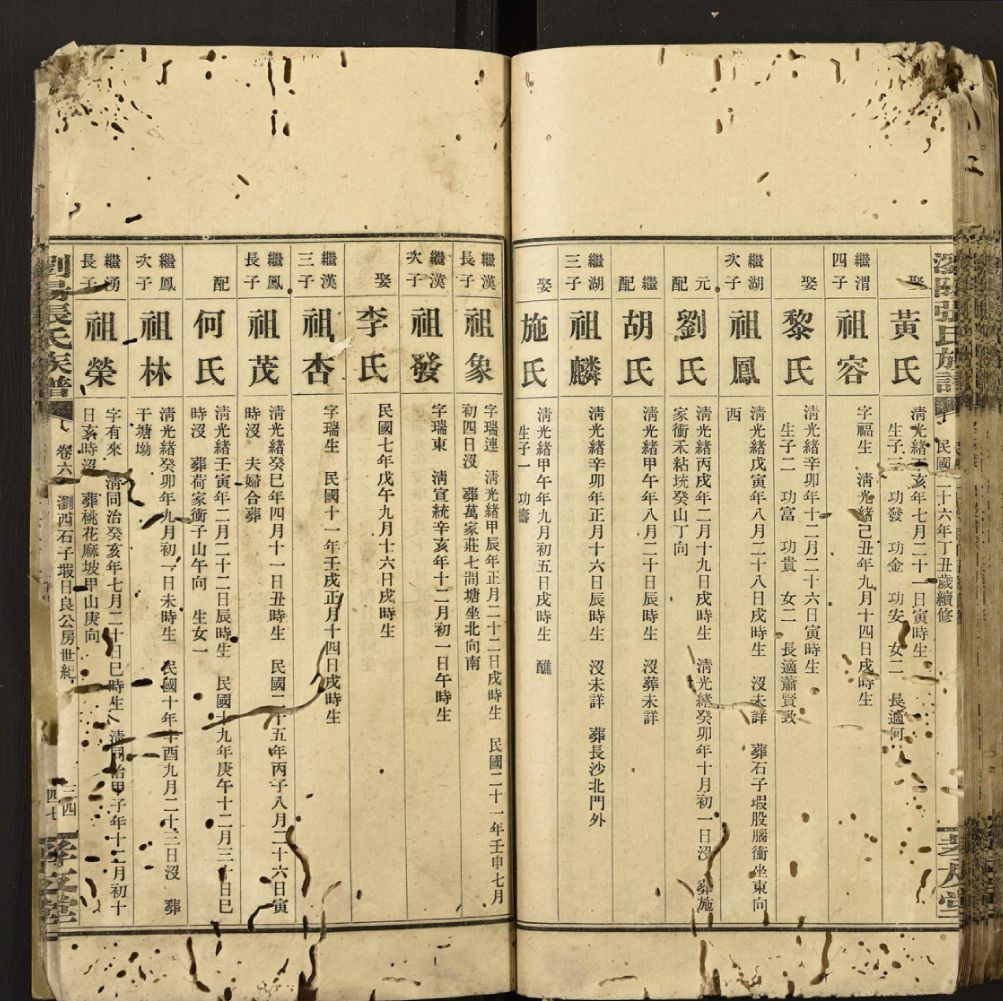 民國二十六年丁丑歲續修
娶
黃氏
清光緒
亥年七月二十一日寅時生
生子三 功發 功金 功安 女二 長適何
繼渭
四子
祖容
字福生 清光緒己丑年九月十四日戌時生
娶
黎氏
清光緒辛卯年十二月二十六日寅時生
生子二 功富 功貴 女二 長適蕭賢政
繼湖
次子
祖鳳
清光緒戊寅年八月二十八日戌時生 沒未詳 葬石子塅股腦衝坐東向
西
元
配
劉氏
清光緒丙戌年二月十九日戌時生 清光緒癸卯年十月初一日沒 葬施
家衝禾粘垅癸山丁向
繼
配
胡氏
清光緒甲午年八月二十日戌時生 沒葬未詳
繼湖
三子
祖麟
清光緒辛卯年正月十六日辰時生 沒未詳 葬長沙北門外
娶
施氏
清光緒甲午年九月初五日戌時生 醮
生子一 功壽
繼漢
長子
祖象
字瑞連 清光緒甲辰年正月二十二日戌時生 民國二十一年壬申七月
初四日沒 葬萬家莊七間塘坐北向南
繼漢
次子
祖發
字瑞東 清宣統辛亥年十二月初一日午時生
娶
李氏
民國七年戊午九月十六日戌時生
繼漢
三子
祖杏
字瑞生 民國十一年壬戌正月十四日戌時生
繼鳳
長子
祖茂
清光緒癸巳年四月十一日丑時生 民國二十五年丙子八月二十六日寅
時沒 夫婦合葬
配
何氏
清光緒壬寅年二月二十二日辰時生 民國十九年庚午十二月三十日巳
時沒 葬荷家衝子山午向 生女一
繼鳳
次子
祖林
清光緒癸卯年九月初一日未時生 民國十年辛酉九月二十三日沒 葬
干塘坳
繼湧
長子
祖榮
字有來 清同治癸亥年七月二十日巳時生 清同治甲子年十二月初十
日亥時沒 葬桃花麻坡甲山庚向
瀏陽張氏族譜
卷六
瀏西石子塅日良公房世紀
三四
四七